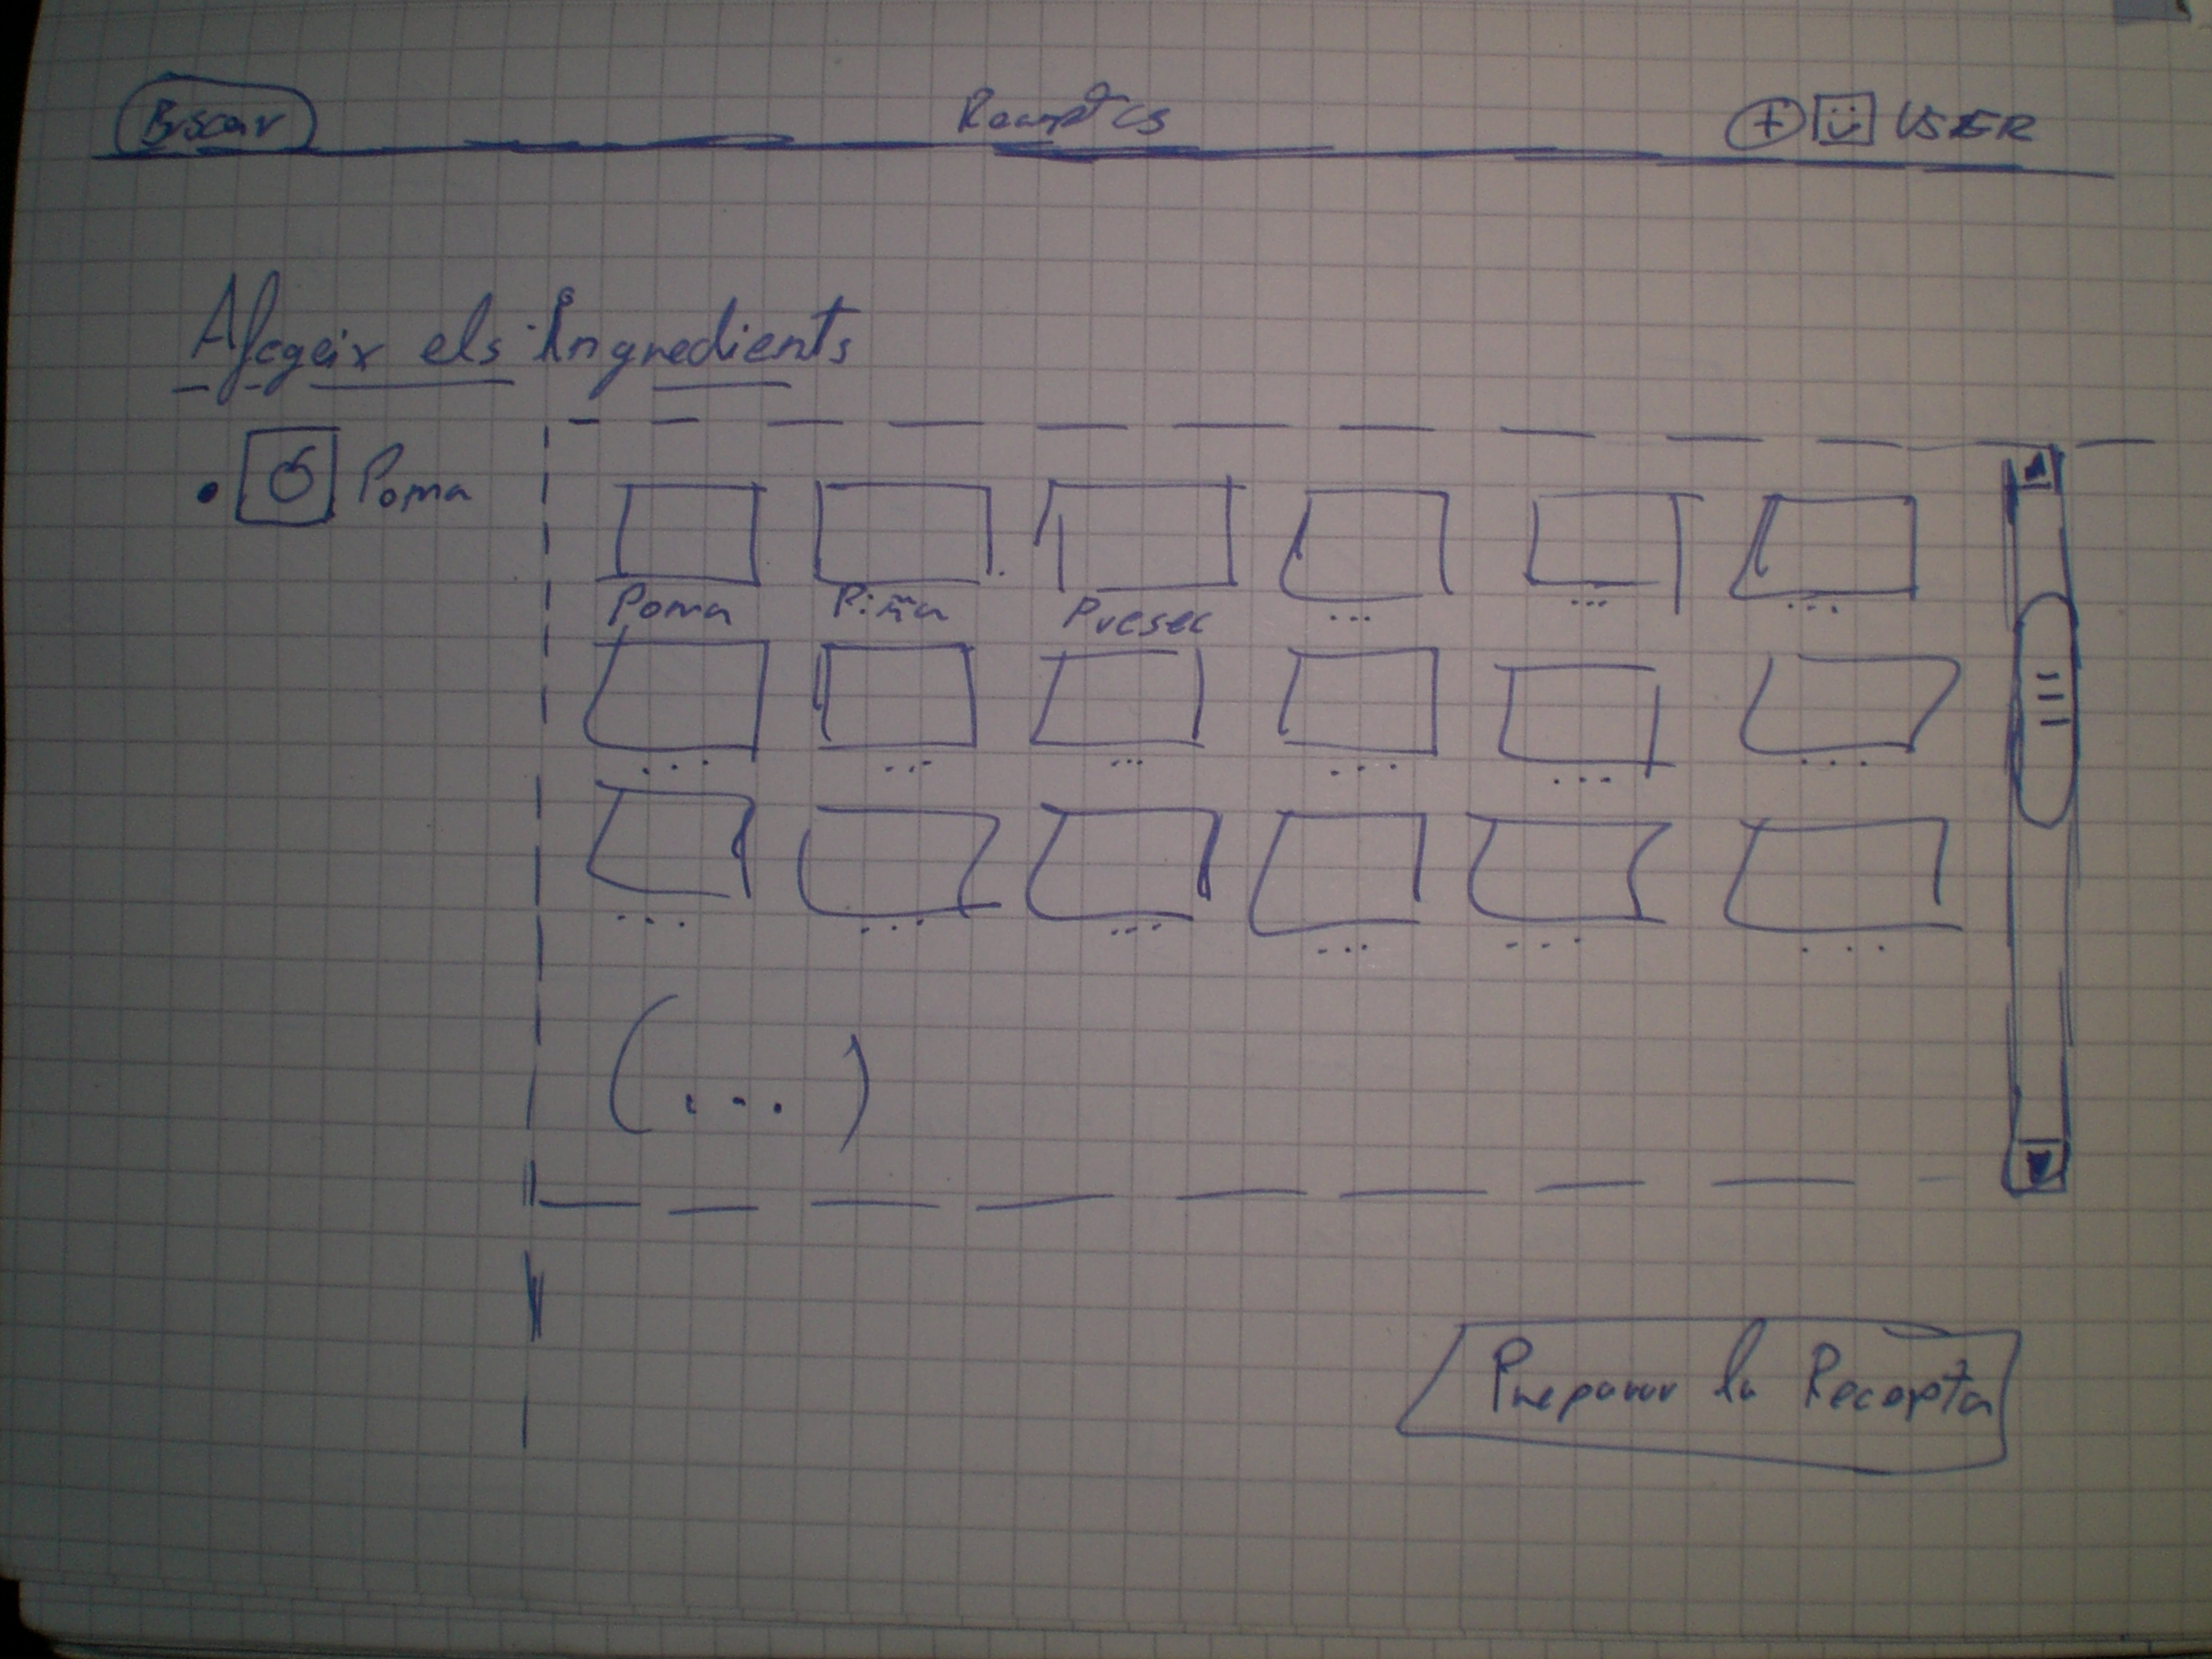 Buscar Receptes + USER
Afegeix els Ingredients
• Poma
Poma Piña Presec ... ... ...
... ... ... ... ... ...
... ... ... ... ... ...
(...)
Preparar la Recepta